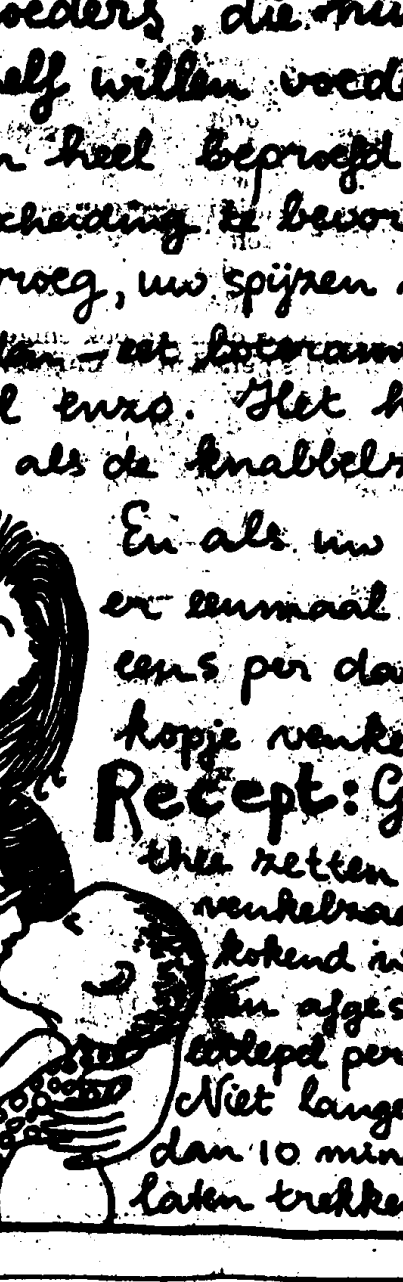 oeders, die
elf willen voed
n heel beproefd
cheiding te bevor
roeg, uw spijzen
den - eet boteram
l enzo. Het h
als de knabbels
En als uw
er eenmaal
eens per da
kopje venke
Recept: G
thee zetten
venkelzaa
kokend w
Een afges
eetlepel per
Niet lange
dan 10 min
laten trekke